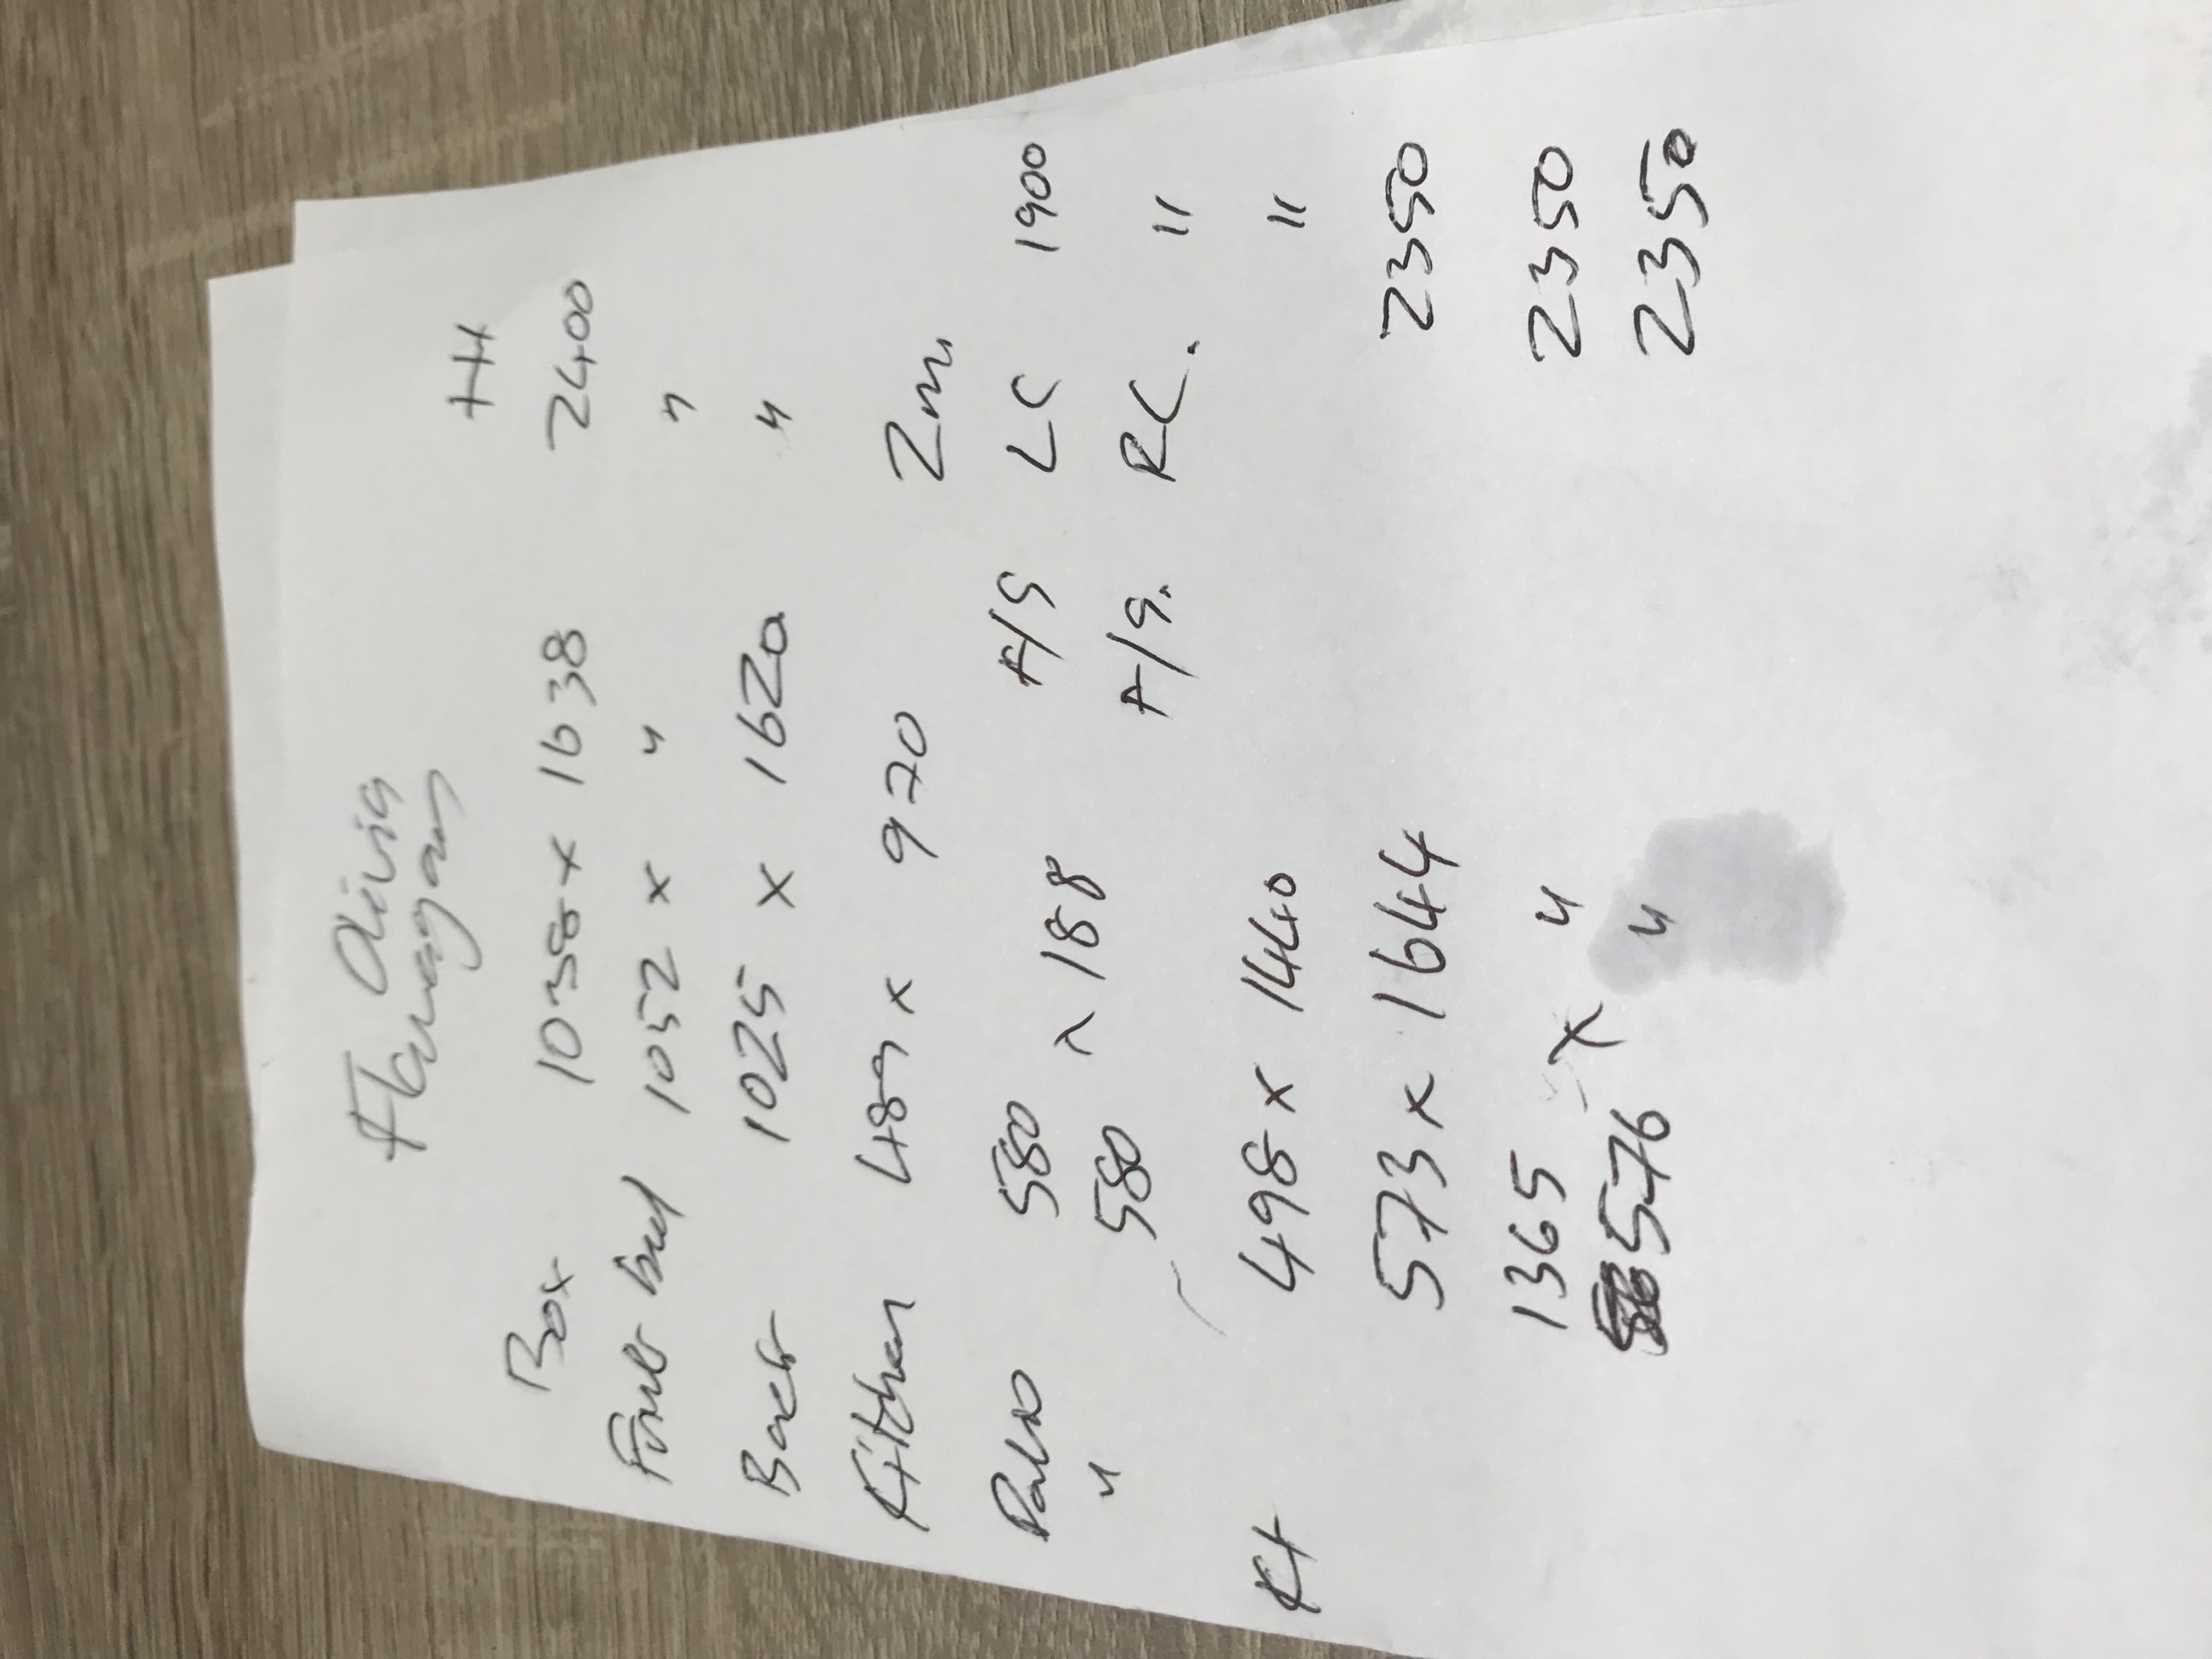 Olivia
Flanagan
HH
Box 1038 x 1638 2400
Front bed 1052 x " "
Back 1025 x 1620 "
Kitchen 489 x 970 2m.
Patio 580 A/S LC 1900
x 188
" 580 A/S. RC. "
Kt 498 x 1440 "
573 x 1644 2350
1365 x " 2350
576 " 2350